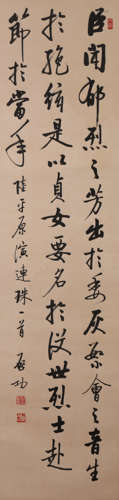 臣聞郁烈之芳出於委灰繁會之音生
於絶絃是以貞女要名於沒世烈士赴
節於當年 陸平原演連珠一首 啟功